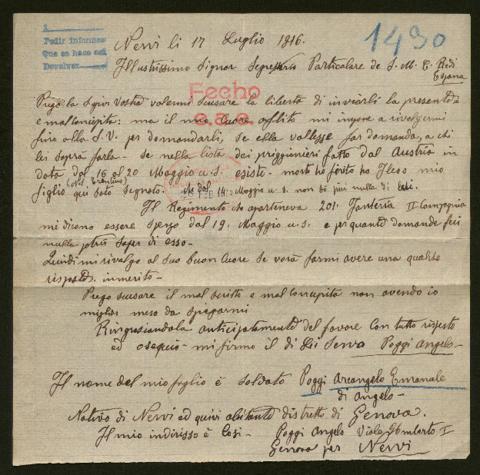 Pedir informes
Que se hace así
Devolver
1490
Nervi li 17 Luglio 1916.
Illustrissimo Signor Segretario Particolare de S. M. E. Redi
Espana
Fecho
Prego la Sgria Vostra valermi scusare la libertà di inviarli la presente
e mal concipita: ma il mio Cuore afflito mi impone a rivolgermi
fino alla S. V. per domandarli, se ella voltesse far domanda, a chi
lei sopra farla - se nella lista dei priggionieri fatto dal Austria in
data dal 16 al 20 Maggio u. s. esiste. morto ho ferito ho Illeso mio
figlio qui soto segnato: che dal 14: Maggio u. s. non si più nulla di
Il Regimento che aparteneva 201. Fanteria II Compagnia
mi dicono essere sperso dal 19. Maggio u. s. e per quante domande feci
nulla potui saper di esso -
Quindi mi rivolgo al suo buon Cuore se vorà farmi avere una qualse
risposta. in merito -
Prego scusare il mal scritto e mal concepito non avendo io
miglior meso da spiegarmi
Ringrasiandola anticipatamente del favore con tutto rispetto
ed osequio - mi firmo il di Lei Servo Poggi Angelo -
Il nome del mio figlio è soldato Poggi Arcangelo Emanale
di Angelo -
Nativo di Nervi ed quivi abitante distretto di Genova.
Il mio indirisso è Cosi - Poggi Angelo Viale Umberto I
Genova per Nervi